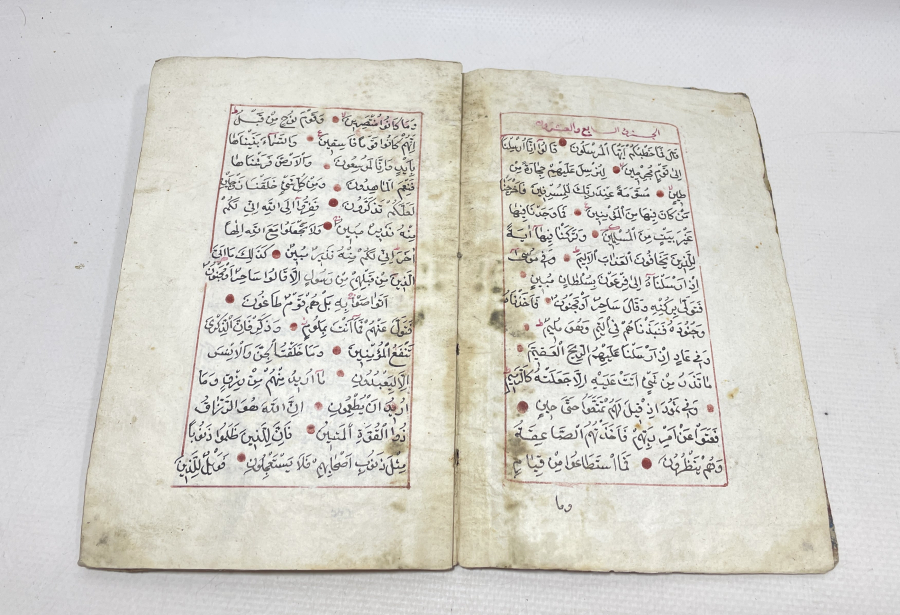 الجزء السابع والعشرون
قال فما خطبكم ايها المرسلون قالوا انا ارسلنا
الى قوم مجرمين لنرسل عليهم حجارة من
طين مسومة عند ربك للمسرفين فاخرجنا
من كان فيها من المؤمنين فما وجدنا فيها
غير بيت من المسلمين وتركنا فيها آية
للذين يخافون العذاب الاليم وفي موسى
اذ ارسلناه الى فرعون بسلطان مبين
فتولى بركنه وقال ساحر او مجنون فاخذناه
وجنوده فنبذناهم في اليم وهو مليم
وفي عاد اذ ارسلنا عليهم الريح العقيم
ما تذر من شئ اتت عليه الا جعلته كالرميم
وفي ثمود اذ قيل لهم تمتعوا حتى حين
فعتوا عن امر ربهم فاخذتهم الصاعقة
وهم ينظرون فما استطاعوا من قيام
وما
وما كانوا منتصرين وقوم نوح من قبل
انهم كانوا قوما فاسقين والسماء بنيناها
بايد وانا لموسعون والارض فرشناها
فنعم الماهدون ومن كل شئ خلقنا زوجين
لعلكم تذكرون ففروا الى الله اني لكم
منه نذير مبين ولا تجعلوا مع الله الها
آخر اني لكم منه نذير مبين كذلك ما اتى
الذين من قبلهم من رسول الا قالوا ساحر او مجنون
اتواصوا به بل هم قوم طاغون
فتول عنهم فما انت بملوم وذكر فان الذكرى
تنفع المؤمنين وما خلقت الجن والانس
الا ليعبدون ما اريد منهم من رزق وما
اريد ان يطعمون ان الله هو الرزاق
ذو القوة المتين فان للذين ظلموا ذنوبا
مثل ذنوب اصحابهم فلا يستعجلون فويل للذين